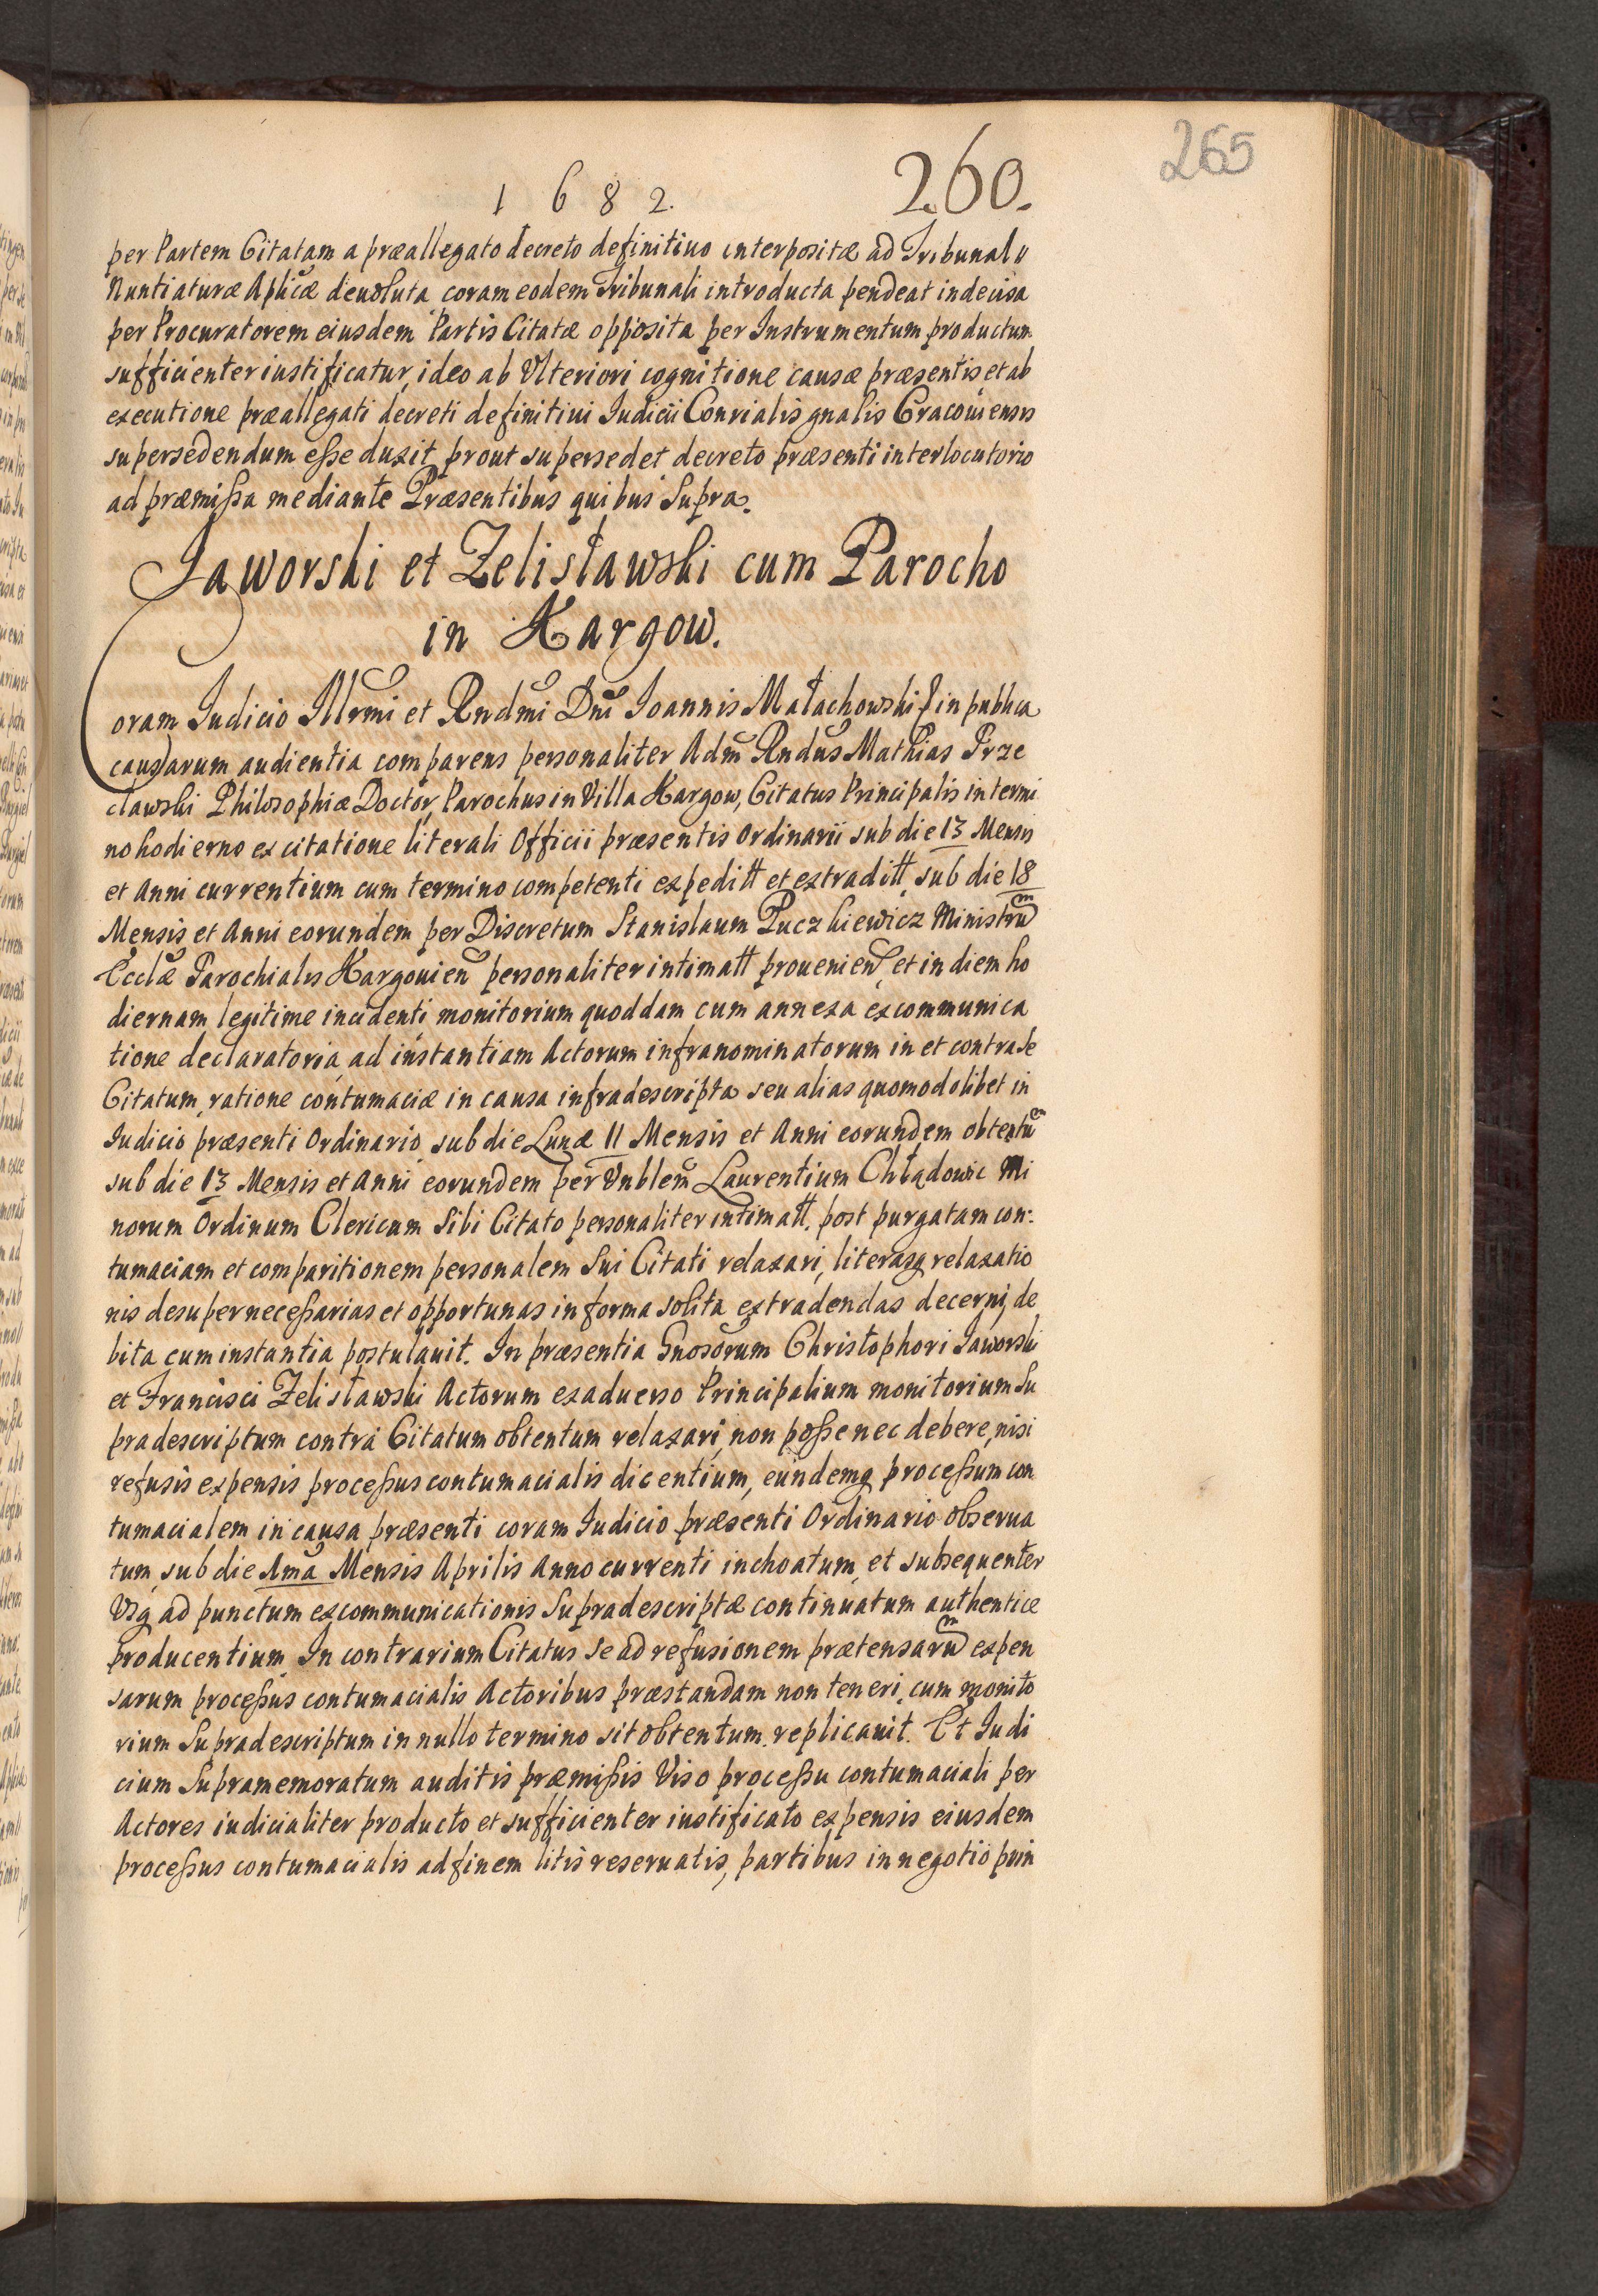 265
1682.
260.
per Partem Citatam a præallegato decreto definitiuo interpositæ ad Tribunal
Nuntiaturæ Aplicæ deuoluta coram eodem Tribunali introducta pendeat indecisa
per Procuratorem eiusdem Partis Citatæ opposita per Instrumentum productum
sufficienter iustificatur, ideo ab Vlteriori cognitione causæ præsentis et ab
executione præallegati decreti definitiui Iudicii Consrialis gnalis Cracouiensis
supersedendum eße duxit prout supersedet decreto præsenti interlocutorio
ad præmißa mediante Præsentibus quibus Supra.
Jaworski et Zelisławski cum Parocho
in Kargow.
Coram Iudicio Illrmi et Rndmi Dni Ioannis Małachowski in publica
causarum audientia comparens personaliter Adm Rndus Mathias Prze
cławski Philosophiæ Doctor, Parochus in Villa Kargow, Citatus Principalis in termi
no hodierno ex citatione literali Officii præsentis Ordinarii sub die 13 Mensis
et Anni currentium cum termino competenti expeditt et extraditt, sub die 18
Mensis et Anni eorundem per Discretum Stanislaum Puczkiewicz Ministrum
Ecclæ Parochialis Kargouien personaliter intimatt prouenien et in diem ho
diernam legitime incidenti monitorium quoddam cum annexa excommunica
tione declaratoria, ad instantiam Actorum infranominatorum in et contra se
Citatum, ratione contumaciæ in causa infradescripta seu alias quomodolibet in
Iudicio præsenti Ordinario, sub die Lunæ 11 Mensis et Anni eorundem obtentum
sub die 13 Mensis et Anni eorundem per Vnblem Laurentium Chłądowic Mi
norum Ordinum Clericum Sibi Citato personaliter intimatt, post purgatam con:
tumaciam et comparitionem personalem Sui Citati relaxari, literasq relaxatio
nis desuper neceßarias et opportunas in forma solita extradendas decerni, de
bita cum instantia postulauit. In præsentia Gnosorum Christophori Iaworski
et Francisci Zelisławski Actorum ex aduerso Principalium monitorium Su
pradescriptum contra Citatum obtentum relaxari, non poße nec debere, nisi
refusis expensis proceßus contumacialis dicentium, eundemq proceßum con
tumacialem in causa præsenti coram Iudicio præsenti Ordinario obserua
tum, sub die 1ma Mensis Aprilis Anno currenti inchoatum, et subsequenter
Vsq ad punctum excommunicationis Supradescriptæ continuatum authentice
producentium. In contrarium Citatus se ad refusionem prætensarum expen
sarum proceßus contumacialis Actoribus præstandam non teneri, cum monito
rium Supradescriptum in nullo termino sit obtentum, replicauit. Et Iudi
cium Supramemoratum auditis præmißis Viso proceßu contumaciali per
Actores iudicialiter producto et sufficienter iustificato expensis eiusdem
proceßus contumacialis ad finem litis reseruatis, partibus in negotio prin